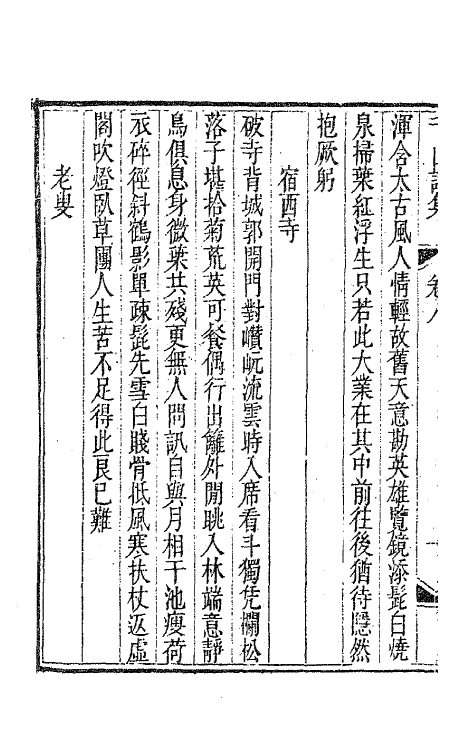 千山詩集 卷八
渾含太古風人情輕故舊天意勘英雄覽鏡添髭白燒
泉掃葉紅浮生只若此大業在其中前往後猶待隱然
抱厥躬
宿西寺
破寺背城郭開門對巑岏流雲時入席看斗獨凭欄松
落子堪拾菊荒英可餐偶行出籬外閒眺入林端意靜
鳥俱息身微葉共殘更無人問訊自與月相干池瘦荷
衣碎徑斜鶴影單疎髭先雪白賤骨低風寒扶杖返虛
閣吹燈臥草團人生苦不足得此良已難
老叟